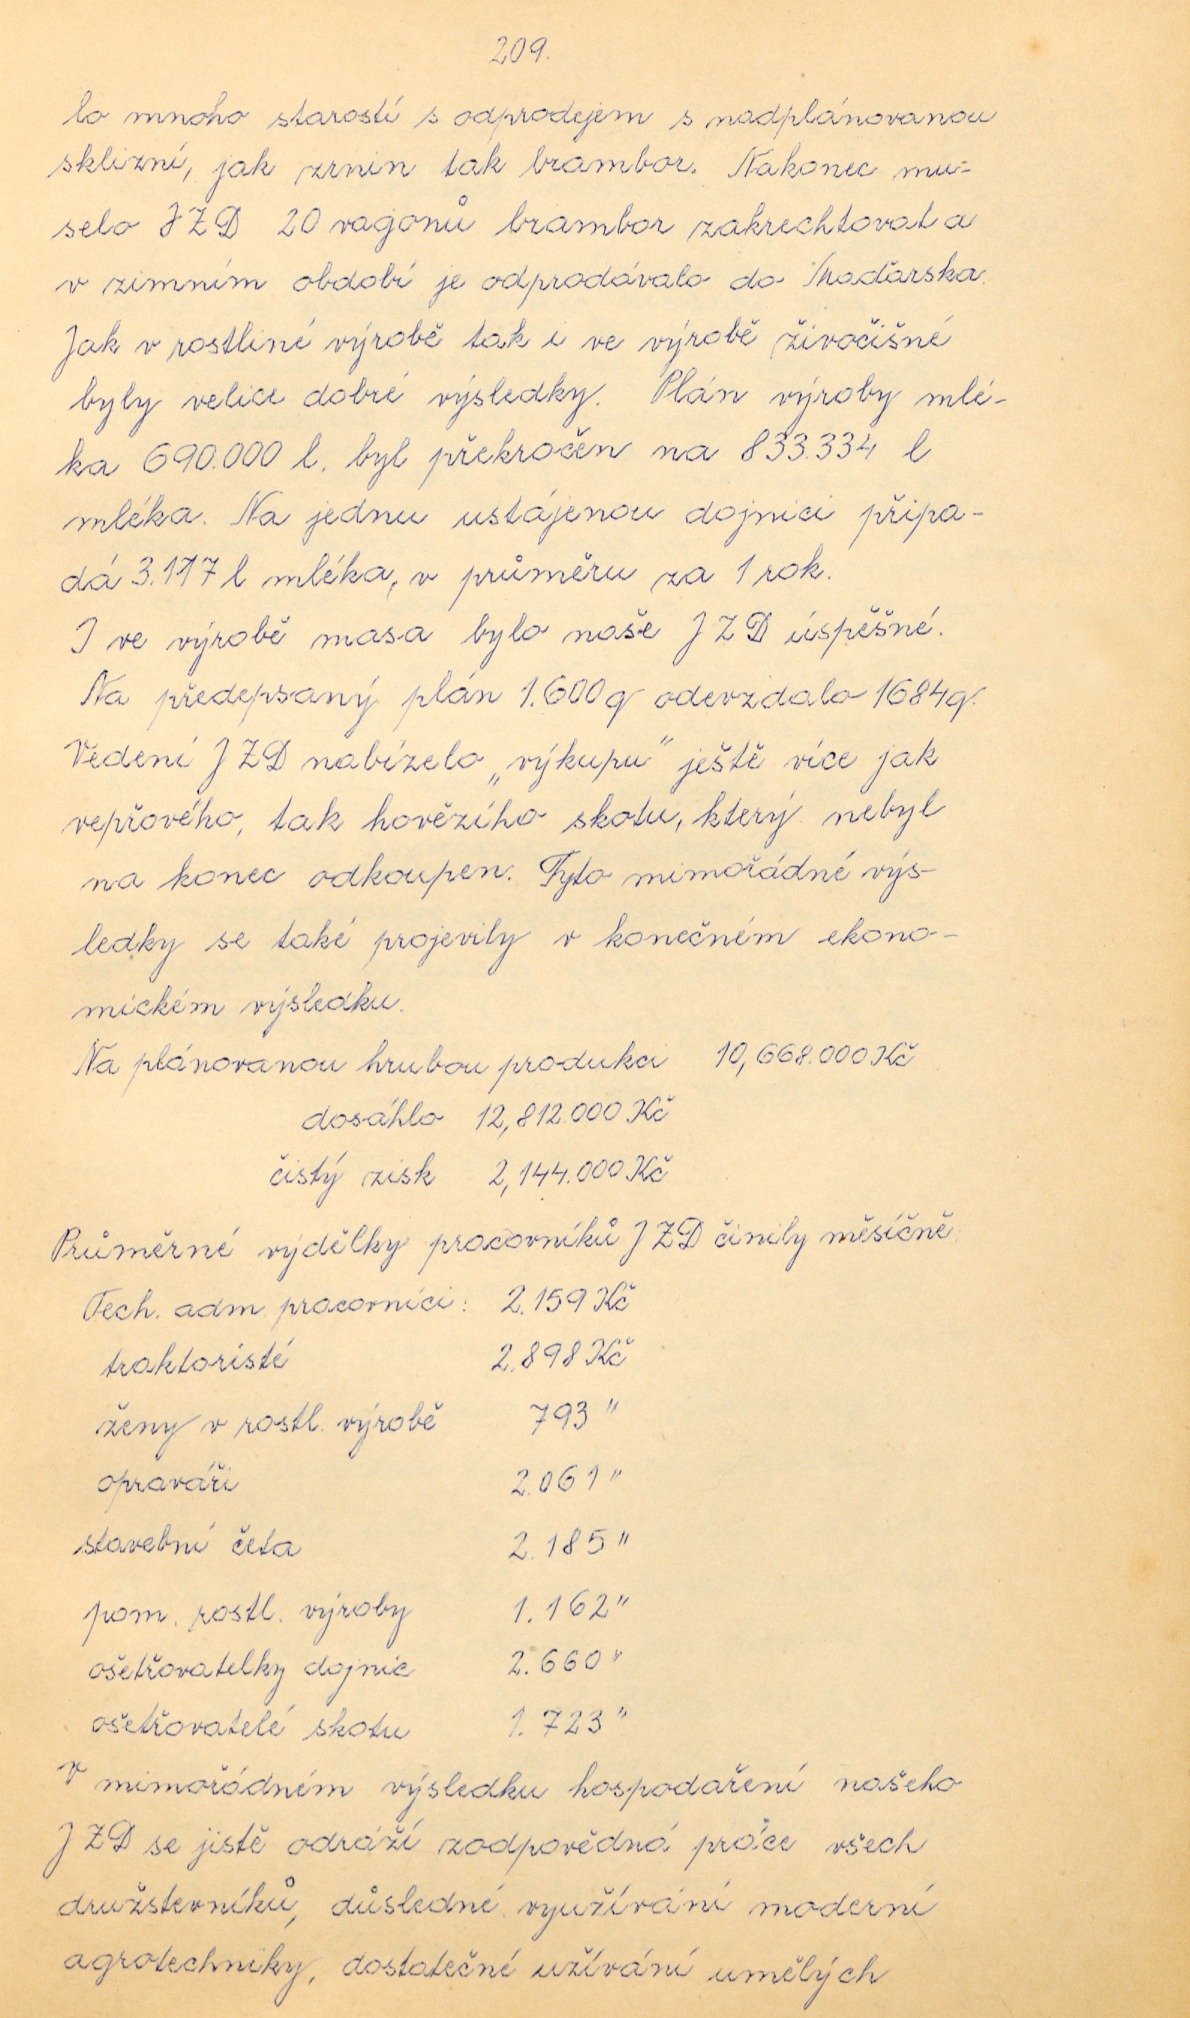 209.
lo mnoho starostí s odprodejem s nadplánovanou
sklizní, jak zrnin tak brambor. Nakonec mu-
selo JZD 20 vagonů brambor zakrechtovat a
v zimním období je odprodávalo do Maďarska.
Jak v rostliné výrobě tak i ve výrobě živočišné
byly velice dobré výsledky. Plán výroby mlé-
ka 690.000 l. byl překročen na 833.334 l
mléka. Na jednu ustájenou dojnici připa-
dá 3.117 l mléka, v průměru za 1 rok.
I ve výrobě masa bylo naše JZD úspěšné.
Na předepsaný plán 1.600 q odevzdalo 1684 q.
Vedení JZD nabízelo „výkupu" ještě více jak
vepřového, tak hovězího skotu, který nebyl
na konec odkoupen. Tyto mimořádné výs-
ledky se také projevily v konečném ekono-
mickém výsledku.
Na plánovanou hrubou produkci 10,668.000 Kč
dosáhlo 12,812.000 Kč
čistý zisk 2,144.000 Kč
Průměrné výdělky pracovníků JZD činily měsíčně.
Tech. adm. pracovníci: 2.159 Kč
traktoristé 2.898 Kč
ženy v rostl. výrobě 793 "
opraváři 2.061 "
stavební četa 2.185 "
pom. rostl. výroby 1.162 "
ošetřovatelky dojnic 2.660 "
ošetřovatelé skotu 1.723 "
V mimořádném výsledku hospodaření našeho
JZD se jistě odráží zodpovědná práce všech
družstevníků, důsledné využívání moderní
agrotechniky, dostatečné užívání umělých